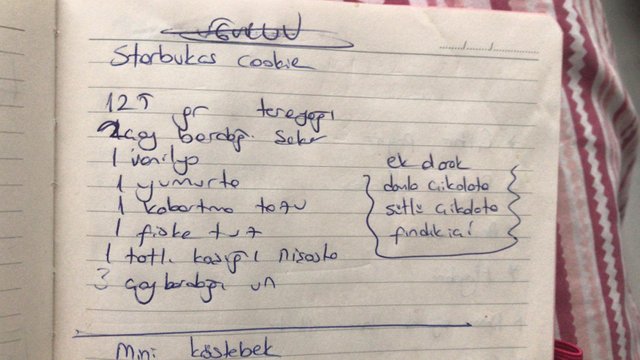 Starbukcs cookie
125 gr tereyağı
2 çay bardağı şeker
1 vanilya
1 yumurta
1 kabartma tozu
1 fiske tuz
1 tatlı kaşığı nişasta
3 çay bardağı un
ek olarak
damla çikolata
sütlü çikolata
fındık içi
mini köstebek